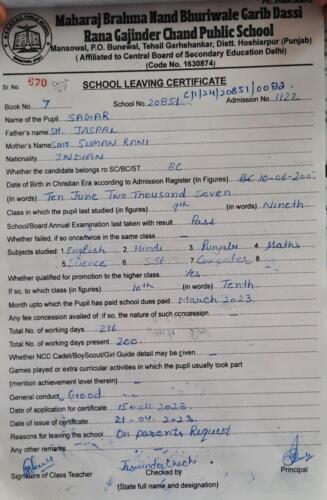 Maharaj Brahma Nand Bhuriwale Garib Dassi
Rana Gajinder Chand Public School
Mansowal, P.O. Bunewal, Tehsil Garhshankar, Distt. Hoshiarpur (Punjab)
( Affiliated to Central Board of Secondary Education Delhi)
(Code No. 1630874)
Sr. No. 670
SCHOOL LEAVING CERTIFICATE
C/1/24/20851/0082
Book No. 7 School No. 20851 Admission No. 1122
Name of the Pupil SAGAR
Father's name SH. JASPAL
Mother's Name SMT SUMAN RANI
Nationality INDIAN
Whether the candidate belongs ro SC/BC/ST BC
Date of Birth in Christian Era according to Admission Register (In Figures) 10-06-200
(In words) Ten June Two Thousand Seven
Class in which the pupil last studied (in figures) 9th (In words) Nineth
School/Board Annual Examination last taken with result Pass
Whether failed, if so once/twice in the same class
Subjects studied: 1. English 2. Hindi 3. Punjabi 4. Maths
5. Science 6. SSt 7. Computer 8.
Whether qualified for promotion to the higher class Yes
If so, to which class (in figures) 10th (in words) Tenth
Month upto which the Pupil has paid school dues paid. March 2023
Any fee concession availed of :if so, the nature of such concession.
Total No. of working days 216
Total No. of working days present 200
Whether NCC Cadet/BoyScout/Girl Guide detail may be given
Games played or extra curricular activities in which the pupil usually took part
(mention achievement level therein)
General conduct Good
Date of application for certificate 2023
Date of issue of certificate 21-04-2023
Reasons for leaving the school On parents Request
Any other remarks
Signature of Class Teacher Checked by Principal
(State full name and designation)